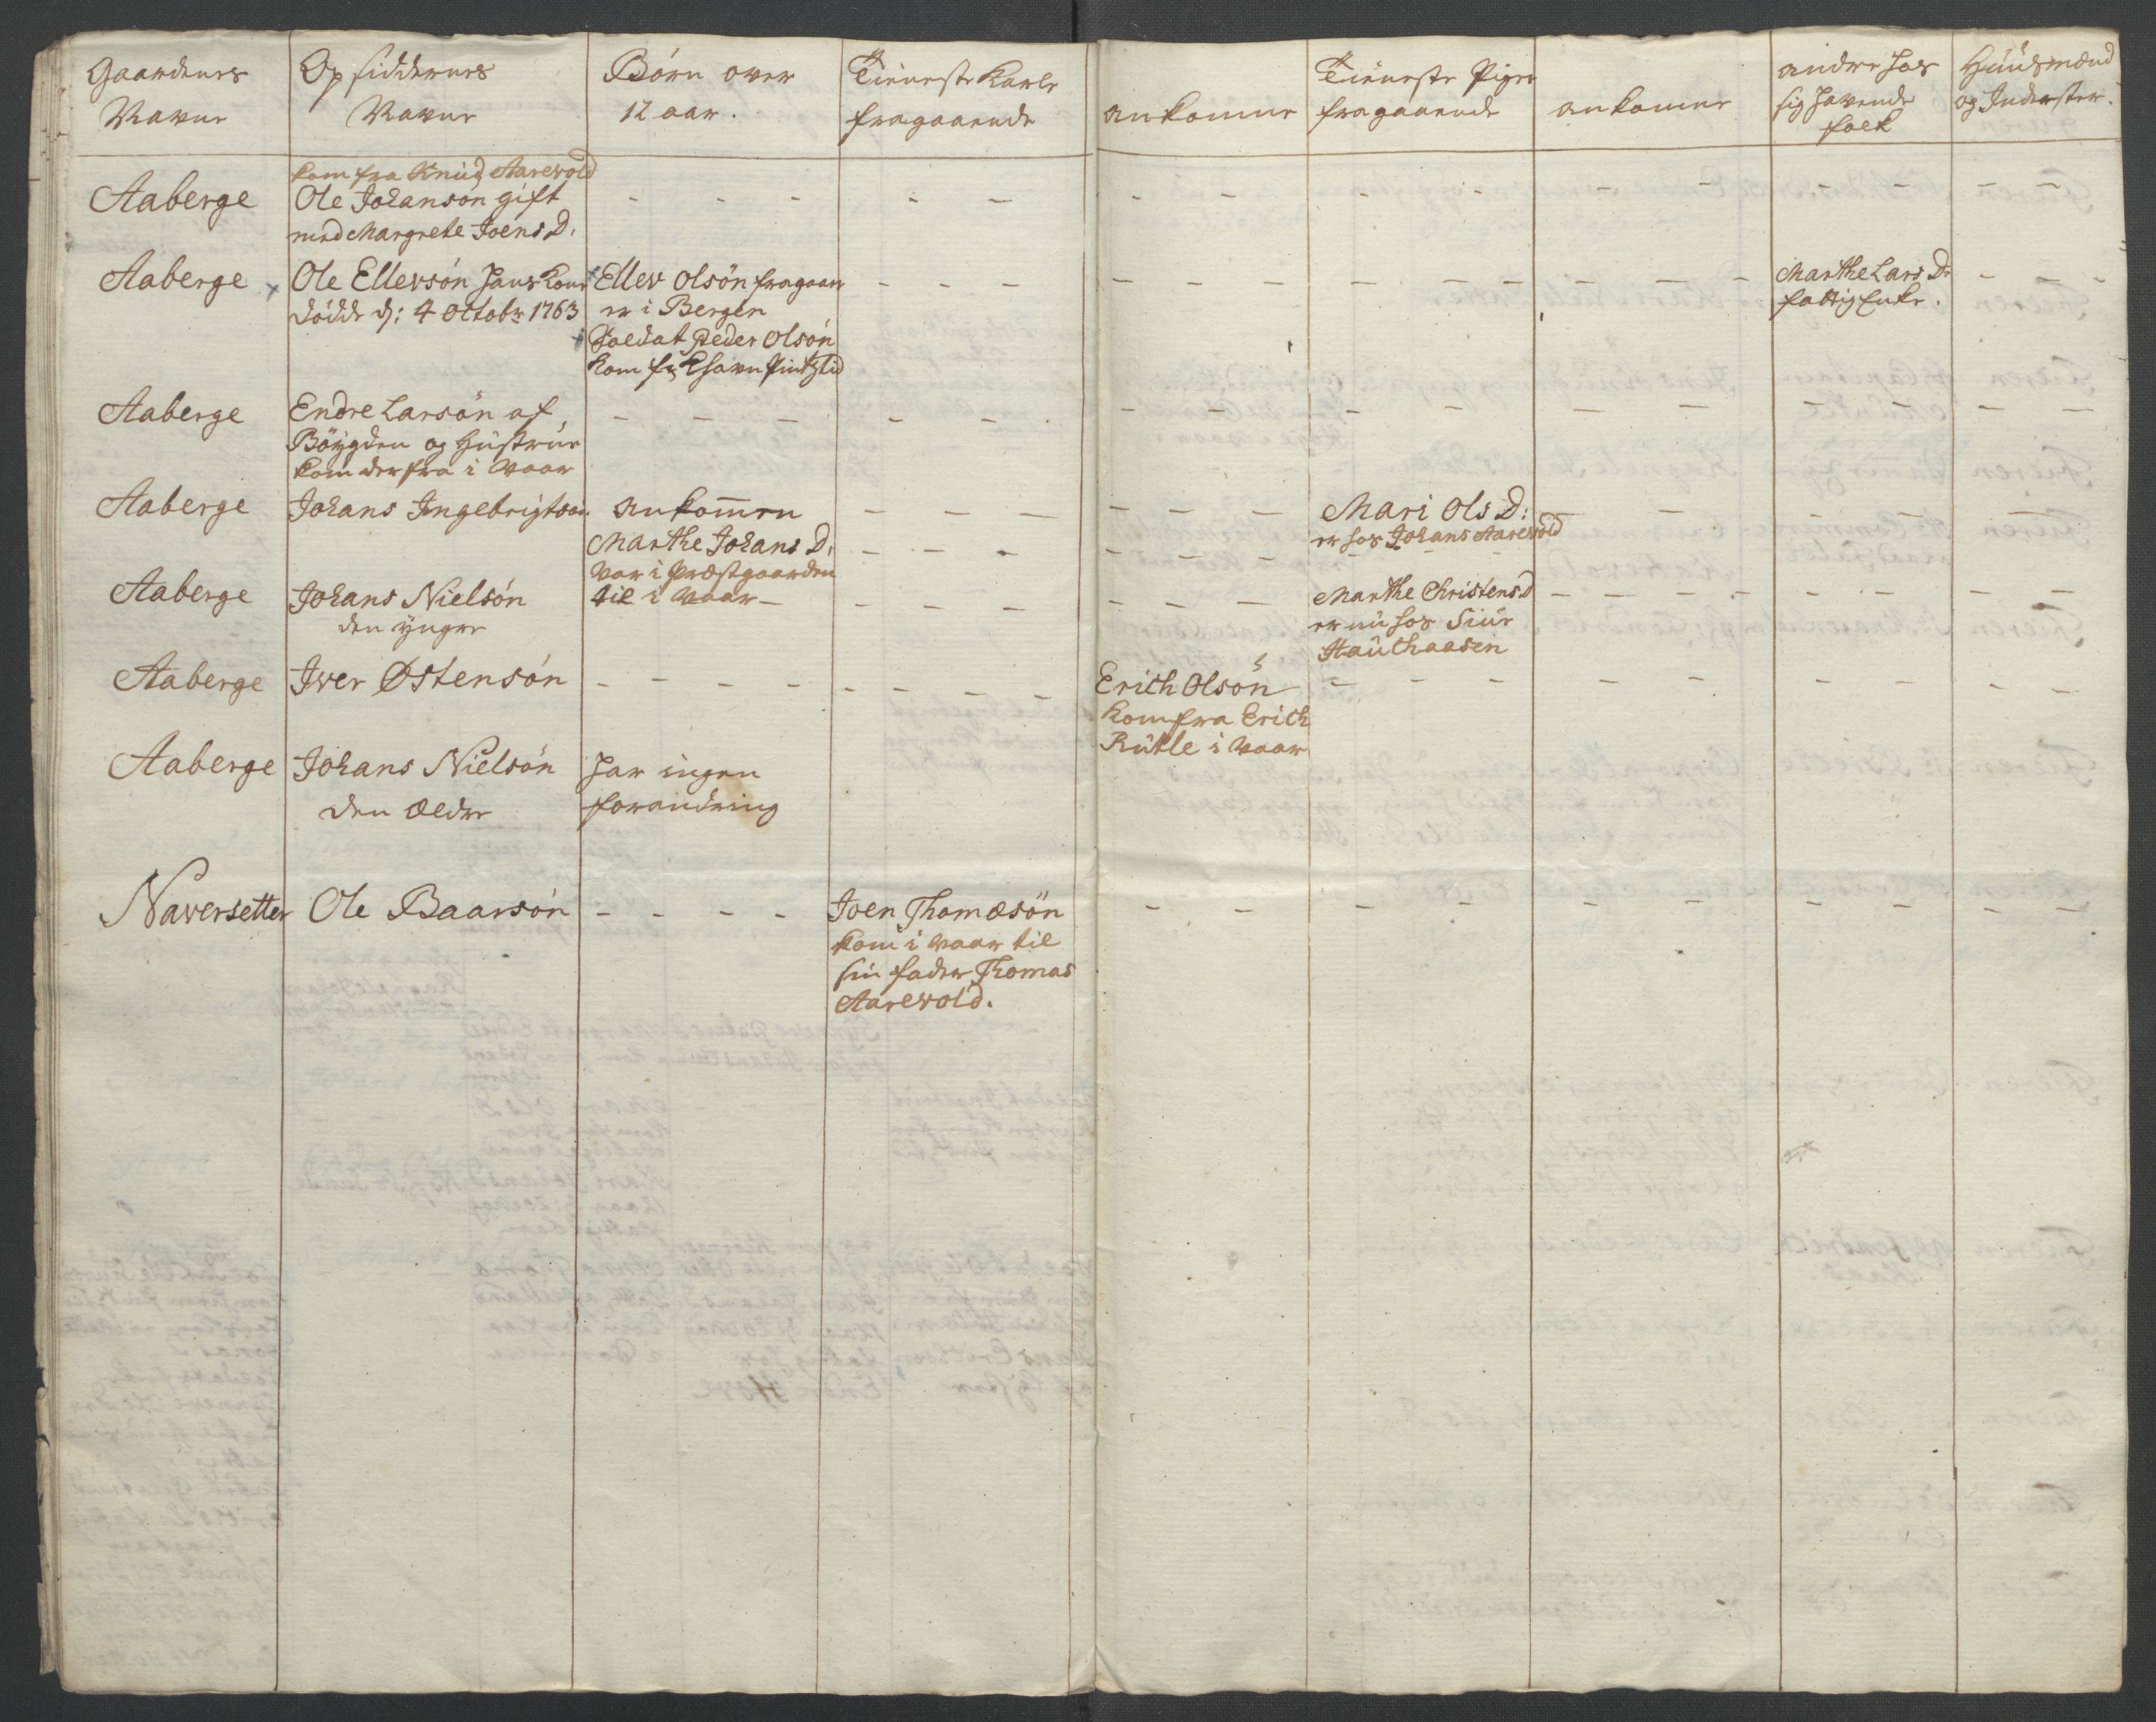 Gaardenes
Navne
Opsiddernes
Navne
Børn over
12 aar.
Tieneste Karle
fragaaende
ankomne
Tieneste Piger
fragaaende
ankomne
andre hos
sig havende
folk
Huusmænd
og Inderster.
Aaberge
kom fra Knud Aarevold
Ole Johanson gift
med Margrete Joens D:
- - - - - - - - - - - - - - -
Aaberge
Ole Ellevsön hans Kone
döde d: 4 Octobr 1763
Ellev Olsön fragaaen
er i Bergen
Soldat Peder Olsön
kom fr Khavn Pintztid
- - - - - - - - - - - -
Marthe Lars Dr
fattig Enke.
- - -
Aaberge
Endre Larsön af
Böygden og Hustrue
kom derfra i Vaar
- - - - - - - - - - - - - - -
Aaberge
Johans Ingebrigtsön
ankommen
Marthe Johans D:
var i Præstgaarden
til i Vaar -
- - - - - -
Mari Ols D:
er hos Johans Aarevold
- - - - - -
Aaberge
Johans Nielsön
den ynger
- - - - - -
Marthe Christens D
er nu hos Siur
Hauthaasen
- - - - - - - -
Aaberge
Iver Østensön
- - - - - - - -
Erich Olsön
kom fra Erich
Rutle i Vaar
- - - - - - - - -
Aaberge
Johans Nielsön
den ælder
har ingen
forandring
Naversetter
Ole Baarsön
- - - -
Joen Thomæsön
kom i Vaar til
sin fader Thomas
Aarevold.
- - - - - - - - - -